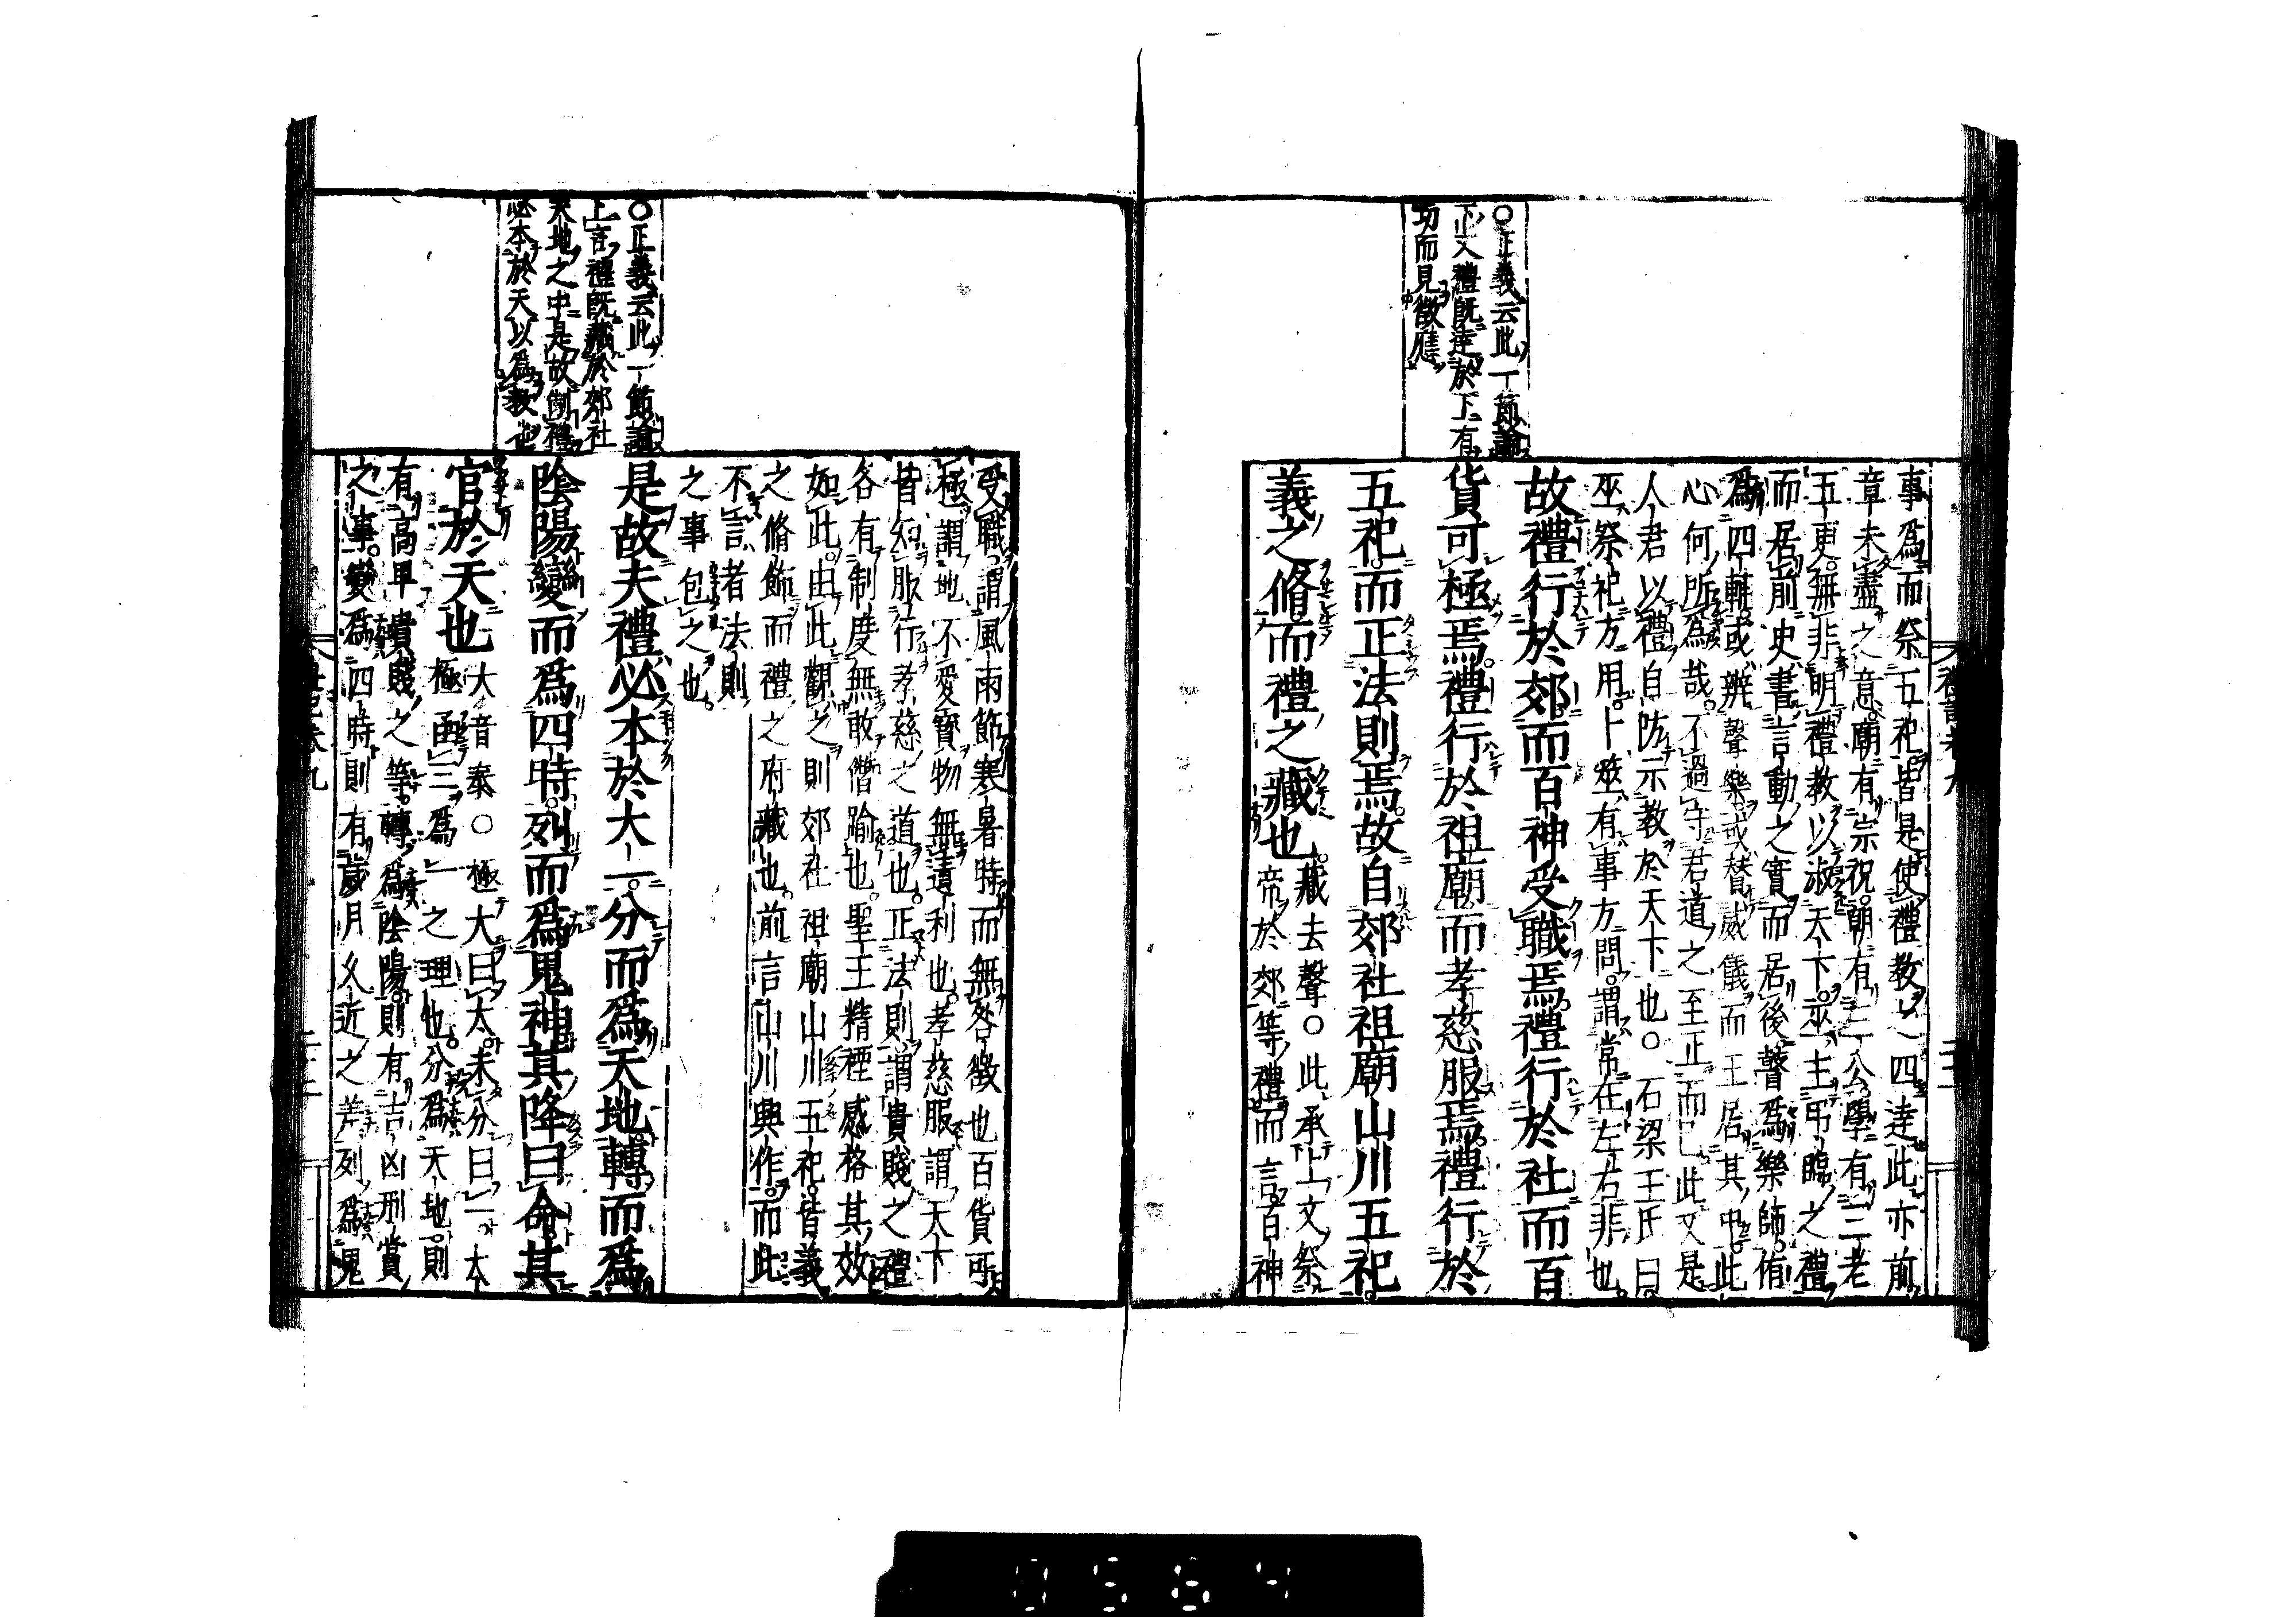 ○正義云此一節論
正人禮既達於下有
功而見徵應
事爲而祭五祀皆是使禮教之四達此亦前
章未盡之意廟有宗祝朝有三公學有三老
五更無非明禮教以淑天下巫主弔臨之禮
而居前史書言動之實而居後瞽爲樂師侑
爲四輔或辨聲樂或替威儀而王居其中此
心何所爲哉不過守君道之至正而已此又是
人君以禮自防示教於天下也○石梁王氏曰
巫祭祀方用卜筮有事方問謂常在左右非也
故禮行於郊而百神受職焉禮行於社而百
貨可極焉禮行於祖廟而孝慈服焉禮行於
五祀而正法則焉故自郊社祖廟山川五祀
義之脩而禮之藏也藏去聲○此承上文祭
帝於郊等禮而言百神
受職謂風雨節寒暑時而無咎徵也百貨可
極謂地不愛寶物無遺利也孝慈服謂天下
皆知服行孝慈之道也正法則謂貴賤之禮
各有制度無敢僭踰也聖王精禋感格其效
如此由此觀之則郊社祖廟山川五祀皆義
之脩飾而禮之府藏也前言山川興作而此
不言者法則
之事包之也
○正義云此一節論
上言禮既藏於郊社
天地之中是故制禮
必本於天以爲教也
是故夫禮必本於大一分而爲天地轉而爲
陰陽變而爲四時列而爲鬼神其降曰命其
官於天也大音泰○極大曰太未分曰一太
極函三爲一之理也分爲天地則
有高卑貴賤之等轉爲陰陽則有吉凶刑賞
之事變爲四時則有歲月久近之差列爲鬼